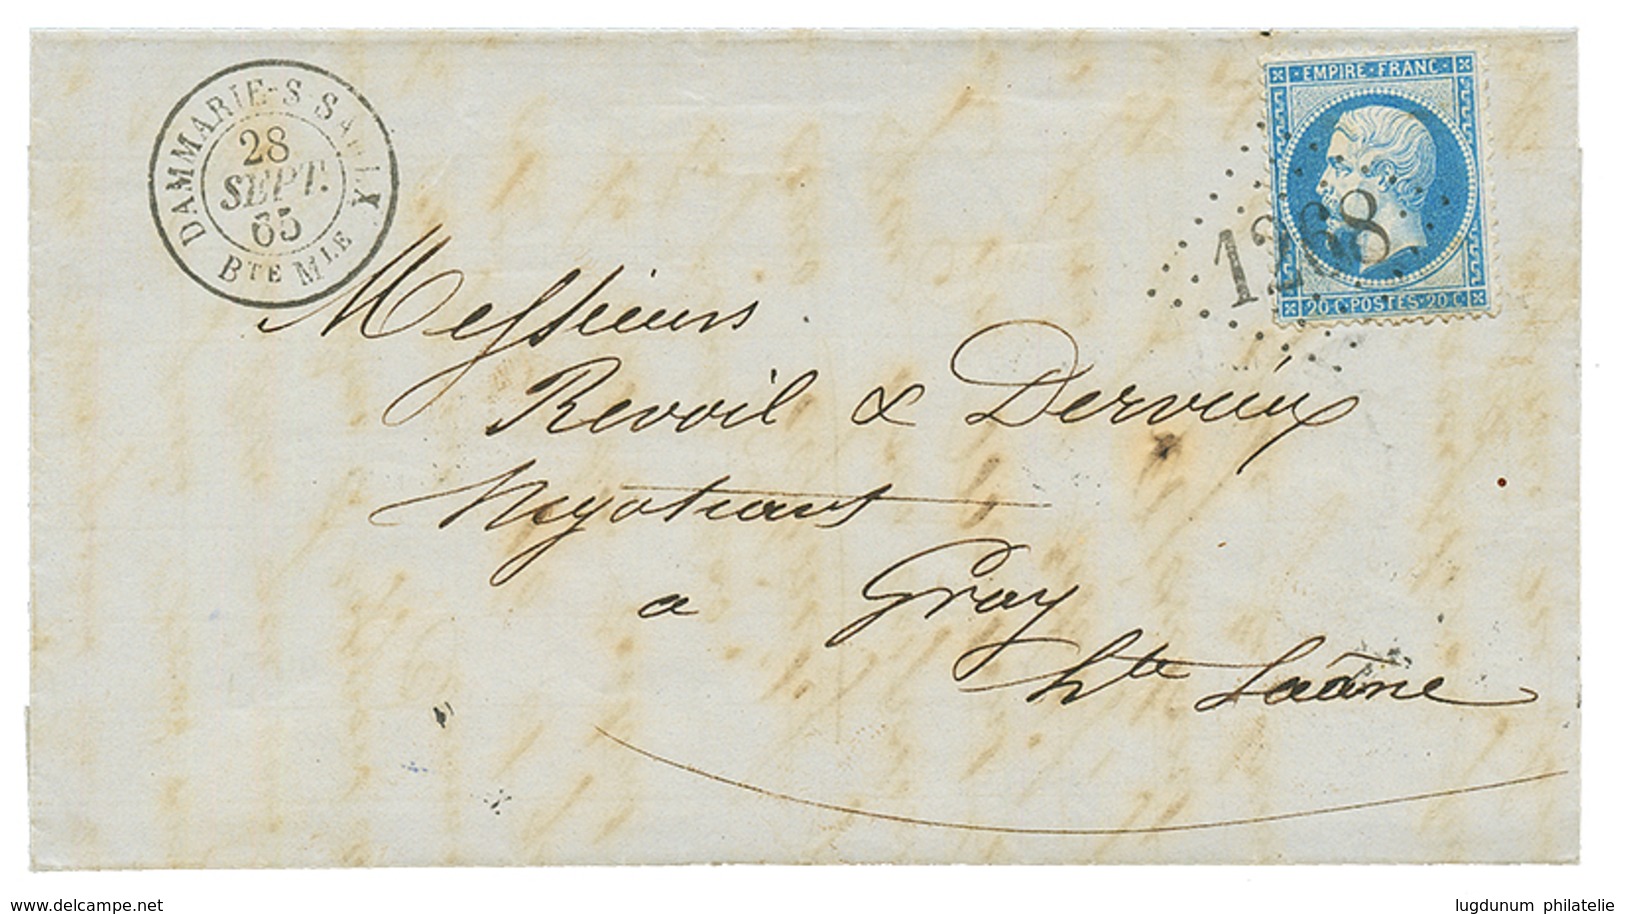 DAMMARIE-S-SAULX
28
SEPT.
65
BTE MLE
EMPIRE FRANC
1268
20 C POSTES 20 C
Messieurs
Revoil & Dervieux
Negotiants
a Gray
hte Saône
delcampe.net
lugdunum philatelie